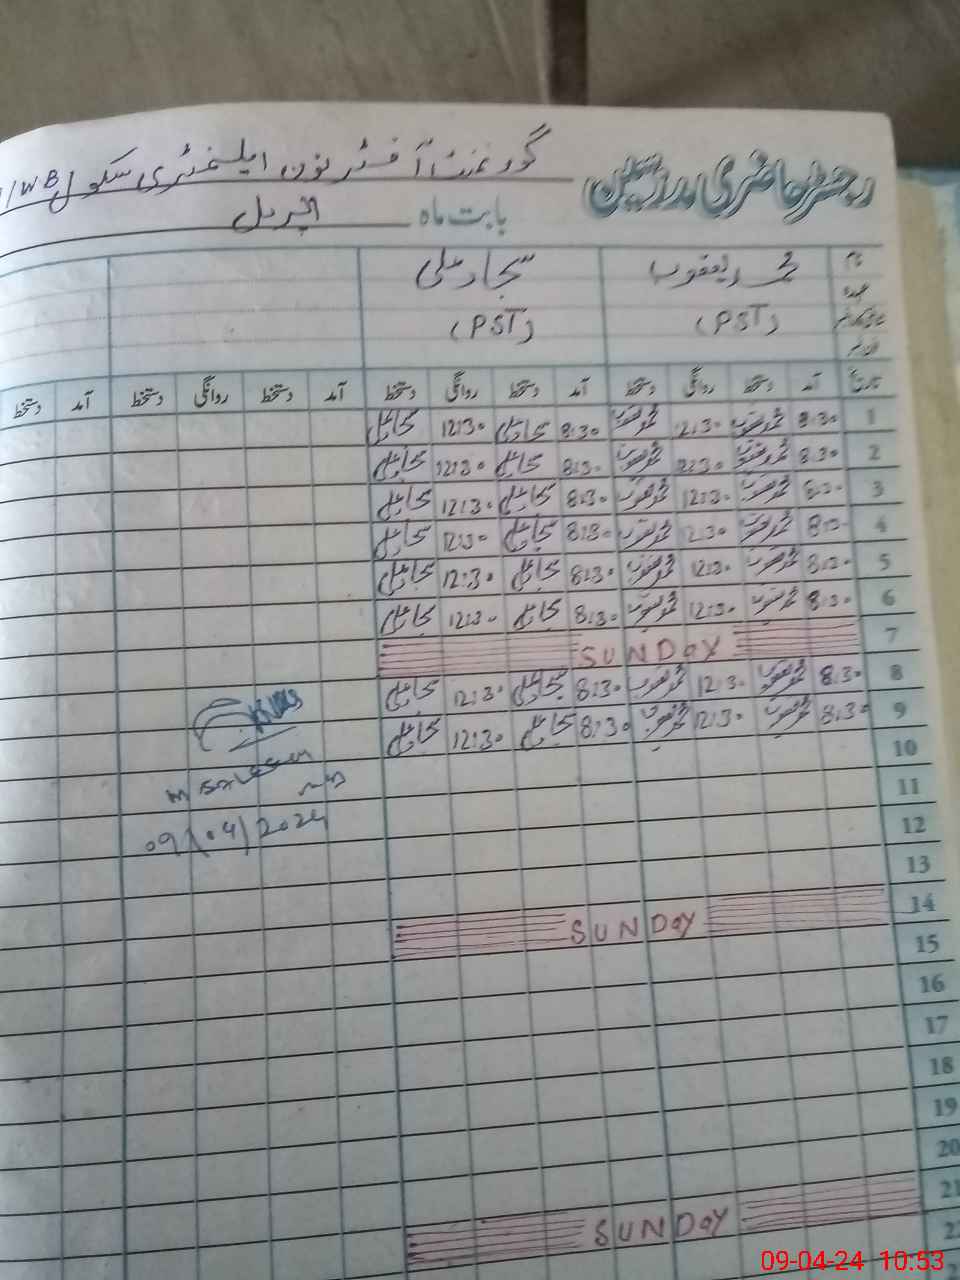 رجسٹر حاضری مدرسین گورنمنٹ آفٹر نون ایلیمنٹری سکول /WB
بابت ماہ اپریل
نام محمد یعقوب سجاد علی
عہدہ
(PST) (PST)
تاریخ آمد دستخط روانگی دستخط آمد دستخط روانگی دستخط آمد دستخط روانگی دستخط آمد دستخط
1 8:30 محمد یعقوب 12:30 محمد یعقوب 8:30 سجاد علی 12:30 سجاد علی
2 8:30 محمد یعقوب 12:30 محمد یعقوب 8:30 سجاد علی 12:30 سجاد علی
3 8:30 محمد یعقوب 12:30 محمد یعقوب 8:30 سجاد علی 12:30 سجاد علی
4 8:30 محمد یعقوب 12:30 محمد یعقوب 8:30 سجاد علی 12:30 سجاد علی
5 8:30 محمد یعقوب 12:30 محمد یعقوب 8:30 سجاد علی 12:30 سجاد علی
6 8:30 محمد یعقوب 12:30 محمد یعقوب 8:30 سجاد علی 12:30 سجاد علی
7 SUNDAY
8 8:30 محمد یعقوب 12:30 محمد یعقوب 8:30 سجاد علی 12:30 سجاد علی
9 8:30 محمد یعقوب 12:30 محمد یعقوب 8:30 سجاد علی 12:30 سجاد علی
10
11
09/04/2024
12
13
14 SUNDAY
15
16
17
18
19
20
21 SUNDAY
22
09-04-24 10:53